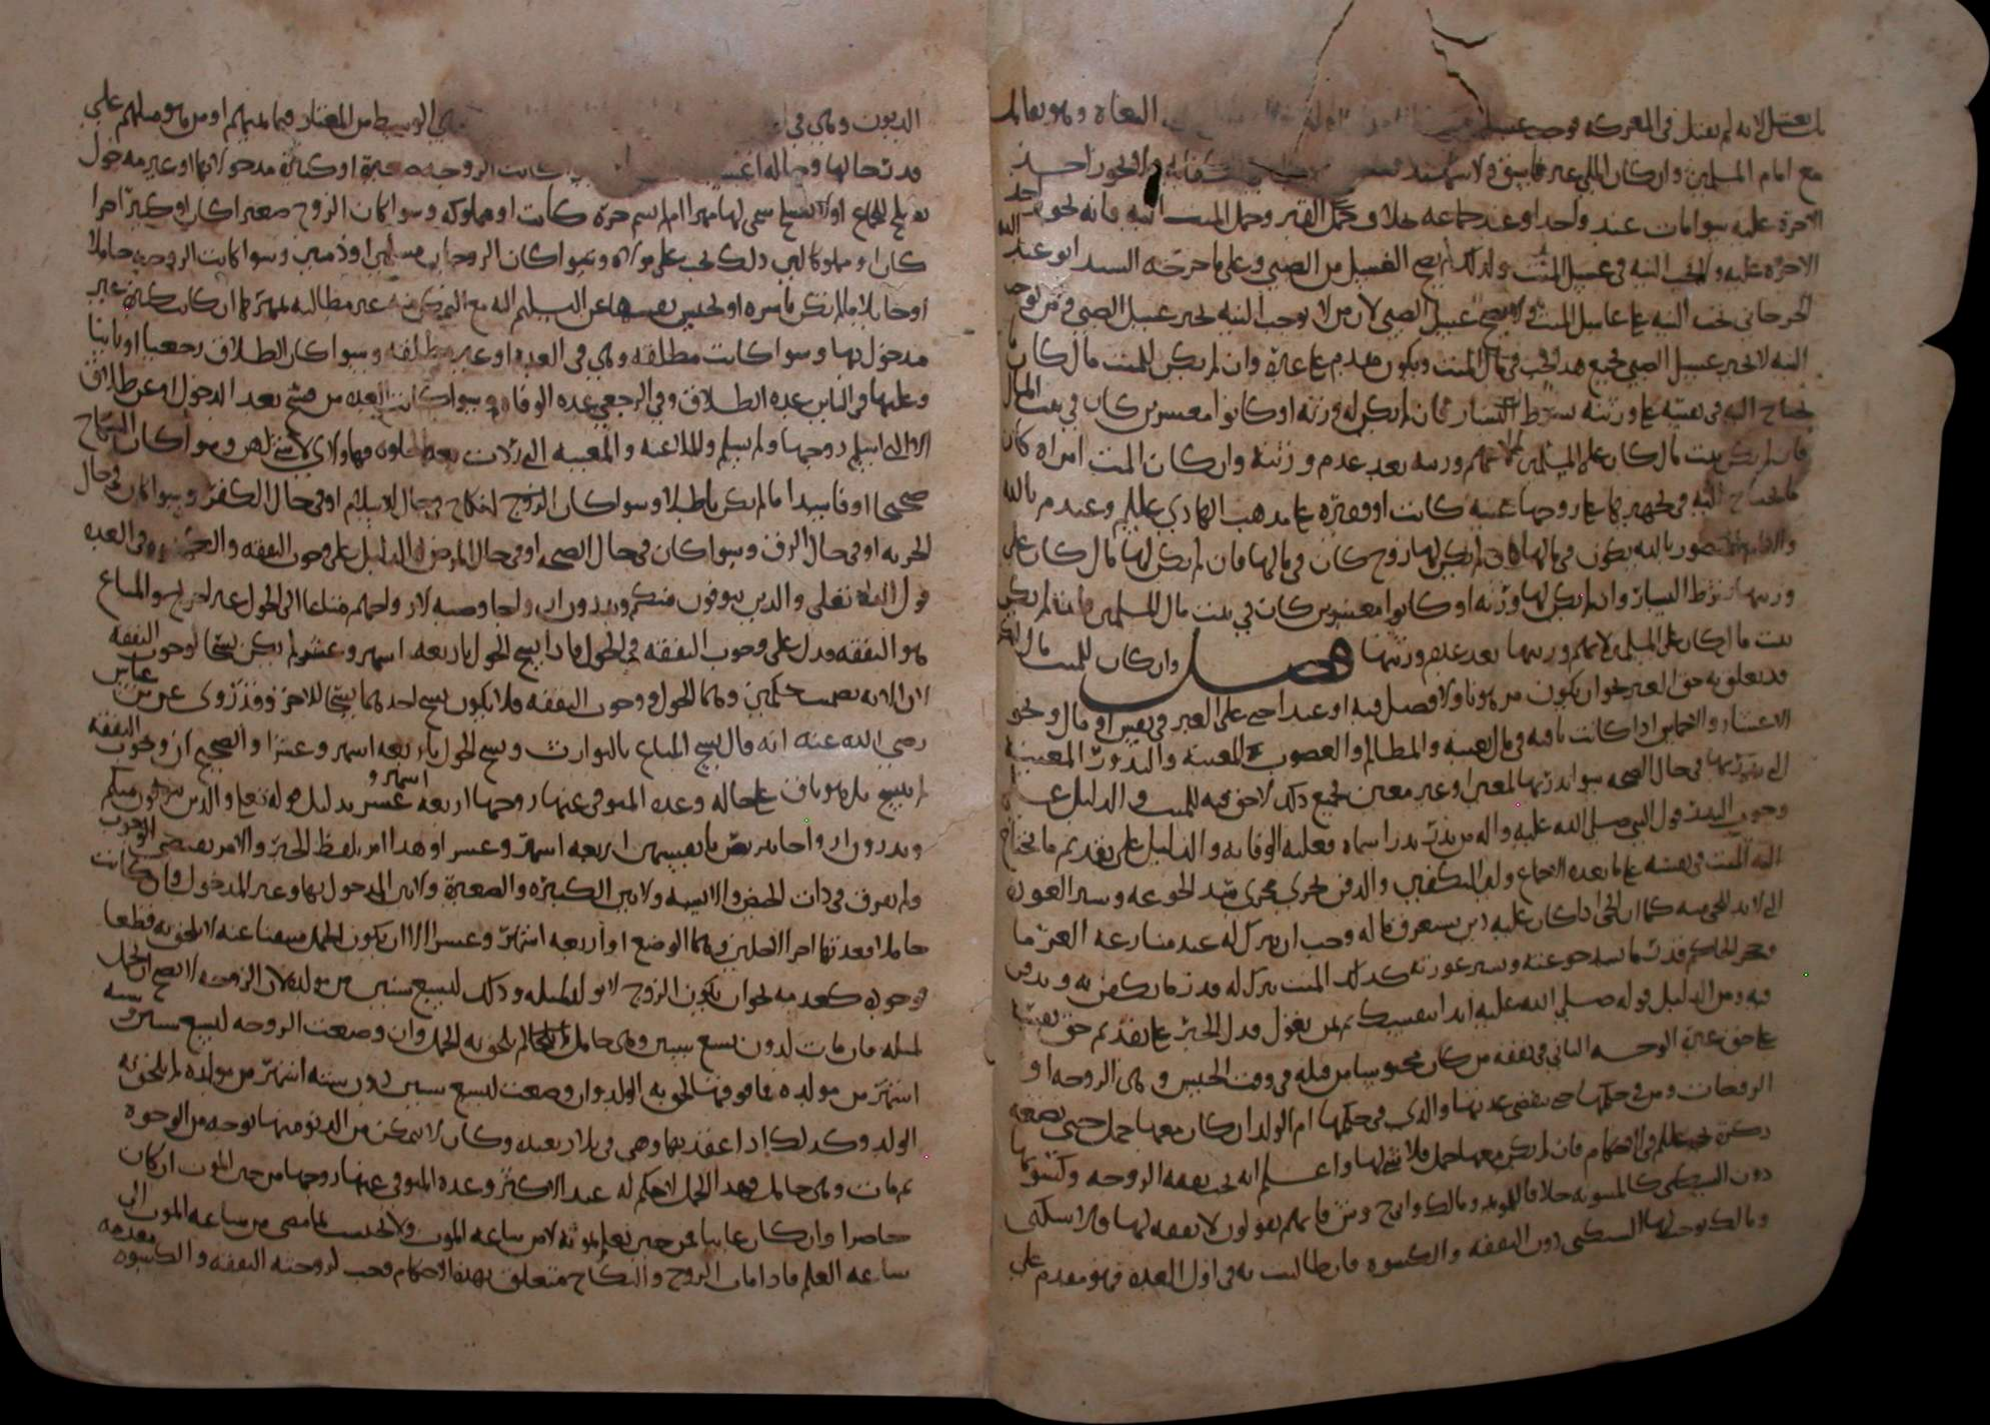 بان يغتسل لانه لم يقتل في المعركه فوجب غسله البغاة وهو يقاتل
مع امام المسلمين وان كان المللي غير فاسق ولا ولا يجوز اخذ
الاجرة عليه سوا مات عند واحد او عند جماعه خلاف حمل القبر وحمل الميت اليه فانه يجوز اخذ
الاجرة عليه وتجب النيه في غسل الميت ولذلك لم يصح الغسل من الصبي وعلى ما خرجه السيد ابو عبد الله
الجرجاني تجب النيه على غاسل الميت ولا يصح غسل الصبي لان من لا يوجب النيه يجيز غسل الصبي ومن يوجب
النيه لا يجيز غسل الصبي فجميع هذا يجب في مال الميت ويكون مقدم على غيره وان لم يكن للميت مال كان ما
يحتاج اليه في نفسه على ورثته بشرط اليسار فان لم يكن له ورثه او كانوا معسرين كان في بيت المال
فان لم يكن بيت مال كان على المسلمين لانهم ورثته بعد عدم ورثته وان كان الميت امراه كان
ما يحتاج اليه في تجهيزها على زوجها غنيه كانت او فقيره على مذهب الهادي عللم وعند م بالله
والامام المنصور بالله يكون في مالها فان لم يكن لها زوج كان في مالها فان لم يكن لها مال كان على
ورثتها بشرط اليسار وان لم يكن لها ورثه او كانوا معسرين كان في بيت مال المسلمين فان لم يكن
بيت مال كان على المسلمين لانهم ورثتها بعد عدم ورثتها فصل وان كان للميت مال
قد تعلق به حق الغير نحو ان يكون مرهونا ولا فضل فيه او عبدا جنى على الغير في نفس او مال ونحو
الاعشار والاخماس اذا كانت باقيه في مال بعينه والمظالم والغصوب المعينه والنذور المعينه
التي نذر بها في حال الصحه سوا نذر بها لمعين او غير معين فجميع ذلك لا حق فيه للميت والدليل على
وجوب النذر قول النبي صلى الله عليه واله من نذر نذرا سماه فعليه الوفا به والدليل على تقديم ما يحتاج
اليه الميت في نفسه على ما بعده الاجماع ولان التكفين والدفن يجري مجرى سد الجوعه وستر العوره
التي لا بد للحي منه كما ان الحي اذا كان عليه دين يستغرق ماله وجب ان يترك له عند منازعه الغرما
وحجر الحاكم قدر ما يسد جوعته وستر عورته كذلك الميت يترك له قدر ما يكفن به ويدفن
فيه ومن الدليل قوله صلى الله عليه ابدا بنفسك ثم بمن تعول فدل الخبر على تقديم حق نفسها
على حق غيره الوجه الثاني في نفقه من كان محبوسا من قبله في وقت الحبس وهي الزوجه او
الزوجات ومن في حكمها حتى تنقضي عدتها والذي في حكمها ام الولد ان كان معها حمل حتى تضعه
ذكره عللم في الاحكام فان لم يكن معها حمل فلا شي لها واعلم انه تجب نفقه الزوجه وكسوتها
دون السكنى كالمبتوته خلافا ومالك و ح وش فانهم يقولون لا نفقه لها ولا سكنى
ومالك يوجب لها السكنى دون النفقه والكسوه فان طالبت به في اول العده فهو مقدم على
الديون وهي في الوسط من المعتاد فيما بينهم او من هو مثلهم على
قدر حالها وحاله كانت الزوجه صغيرة او كبيرة مدخولا بها او غير مدخول
تصلح للجماع او لا تصلح سمى لها مهرا ام لم يسم حرة كانت او مملوكه وسوا كان الزوج صغيرا كان او كبيرا حرا
كان او مملوكا لكن ذلك يجب على مولاه وسوا كان الزوجان مسلمين او ذميين وسوا كانت الزوجه حاملا
او حايلا ما لم تكن ناشزه او تحبس نفسها عن التسليم اليه مع التمكن منه غير مطالبه بمهرها ان كانت كبيرة غير
مدخول بها وسوا كانت مطلقه وهي في العده او غير مطلقه وسوا كان الطلاق رجعيا او باينا
وعليها في الباين عده الطلاق وفي الرجعي عده الوفاه وسوا كانت العده من فسخ بعد الدخول او عن طلاق
الا التي اسلم زوجها ولم تسلم والملاعنه والمعيبه التي ردت بعد الخلوه فهاولاي لا شي لهن وسوا كان النكاح
صحيحا او فاسدا ما لم يكن باطلا وسوا كان الزوج نكاح في حال الاسلام او في حال الكفر وسوا كان في حال
الحريه او في حال الرق وسوا كان في حال الصحه او في حال المرض والدليل على وجوب النفقه والكسوه في العده
قول الله تعالى والذين يتوفون منكم ويذرون ازواجا وصيه لازواجهم متاعا الى الحول غير اخراج والمتاع
هو النفقه فدل على وجوب النفقه في الحول فاذا نسخ الحول باربعه اشهر وعشر لم يكن نسخا لوجوب النفقه
لان الايه تضمنت حكمين وهما الحول ووجوب النفقه فلا يكون نسخ احدهما نسخا للاخر وقد روي عن بن عباس
رضي الله عنه انه قال نسخ المتاع بالتوارث ونسخ الحول باربعه اشهر وعشرا والصحيح ان وجوب النفقه
لم ينسخ بل هو باق على حاله وعده المتوفى عنها زوجها اربعه اشهر و عشر بدليل قوله تعالى والذين يتوفون منكم
ويذرون ازواجا يتربصن بانفسهن اربعه اشهر وعشرا وهذا امر بلفظ الخبر والامر يقتضي الوجوب
ولم يفرق في ذات الحيض والايسه ولا بين الكبيره والصغيره ولا بين المدخول بها وغير المدخول فان كانت
حاملا فعدتها اخر الاجلين وهما الوضع او اربعه اشهر وعشرا الا ان يكون الحمل منتفيا عنه لا يلحق به قطعا
فوجوده كعدمه نحو ان يكون الزوج لا يولد لمثله وذلك لتسع سنين من مولده لان الزوجه لا يصح الحمل
لمثله فان مات لدون تسع سنين وهي حامل لم يلحق به الحمل وان وضعت الزوجه لتسع سنين وسته
اشهر من مولده فما فوقها لحق به الولد وان وضعت لتسع سنين ودون سته اشهر من مولده لم يلحق به
الولد وكذلك اذا عقد بها وهي في بلاد بعيده وكان لا يتمكن من الدنو منها بوجه من الوجوه
ثم مات وهي حامل فهذا الحمل لا حكم له عند الاكثر وعده المتوفى عنها زوجها من حين الموت ان كان
حاضرا وان كان غايبا فمن حين تعلم بموته لا من ساعه الموت ولا تحتسب بما مضى من ساعه الموت الى
ساعه العلم فاذا مات الزوج والنكاح متعلق بهذه الاحكام وجب لزوجته النفقه والكسوه مقدمه